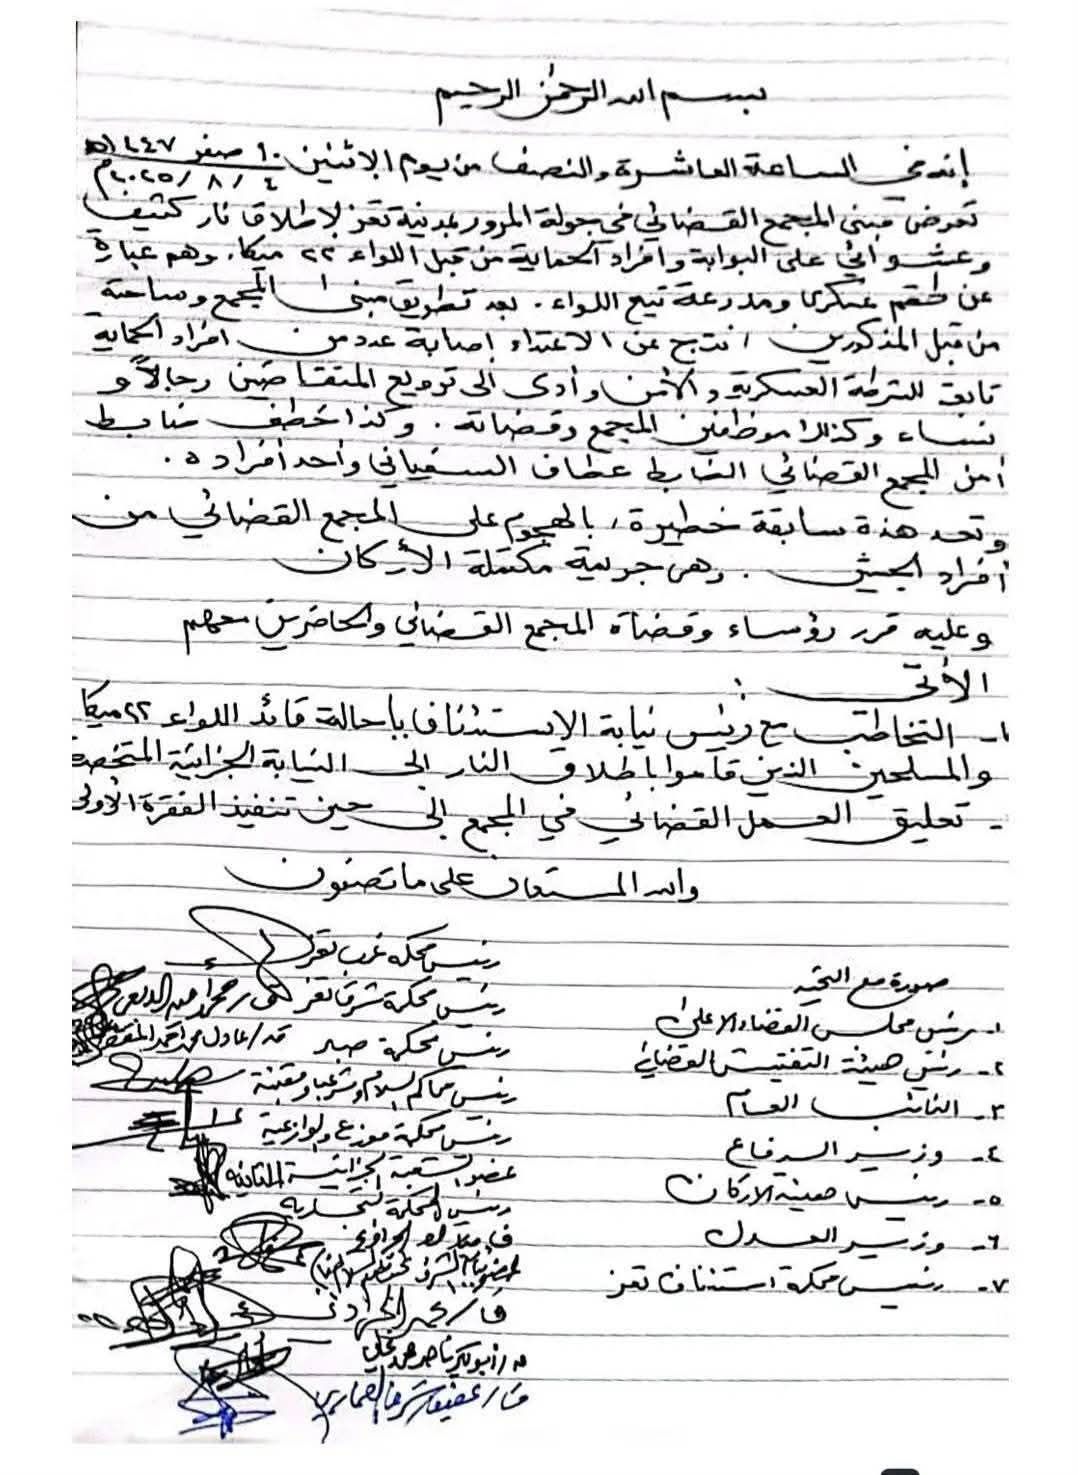 بسم الله الرحمن الرحيم
إنه في الساعة العاشرة والنصف من يوم الاثنين ١٠ صفر ١٤٤٧ه
٤ / ٨ / ٢٠٢٥م
تعرض مبنى المجمع القضائي في جولة المرور بمدينة تعز لإطلاق نار كثيف
وعشوائي على البوابة وافراد الحماية من قبل اللواء ٢٢ ميكا. وهم عبارة
عن طقم عسكري ومدرعة تتبع اللواء. بعد تطويق مبنى المجمع وساحته
من قبل المذكورين انتج عن الاعتداء إصابة عدد من افراد الحماية
تابع للشرطة العسكرية والأمن وأدى الى ترويع المتقاضين رجالاً و
نساء وكذلك موظفين المجمع وقضاته. وكذا خطف ضابط
أمن المجمع القضائي الضابط عطاف السفياني واحد افراده.
وتعد هذة سابقة خطيرة، بالهجوم على المجمع القضائي من
أفراد الجيش. وهي جريمة مكتملة الأركان
وعليه قرر رؤساء وقضاة المجمع القضائي والحاضرين معهم
الاتي :
١- التخاطب مع رئيس نيابة الاستئناف بإحالة قائد اللواء ٢٢ ميكا
والمسلحين الذين قاموا باطلاق النار الى النيابة الجزائية المتخصصة
- تعليق العمل القضائي في المجمع إلى حين تنفيذ الفقرة الأولى
والله المستعان على ما تصفون
صورة مع التحية
١- رئيس مجلس القضاء الاعلى
٢- رئيس هيئة التفتيش القضائي
٣- النائب العام
٤- وزير الدفاع
٥- رئيس هيئة الاركان
٦- وزير العدل
٧- رئيس محكمة استئناف تعز
رئيس محكمة غرب تعز
رئيس محكمة شرق تعز
رئيس محكمة صبر
رئيس محاكم السلام وشرعب ومقبنة
رئيس محكمة موزع والوازعية
عضو الشعبة الجزائية الثانية
رئيس المحكمة التجارية